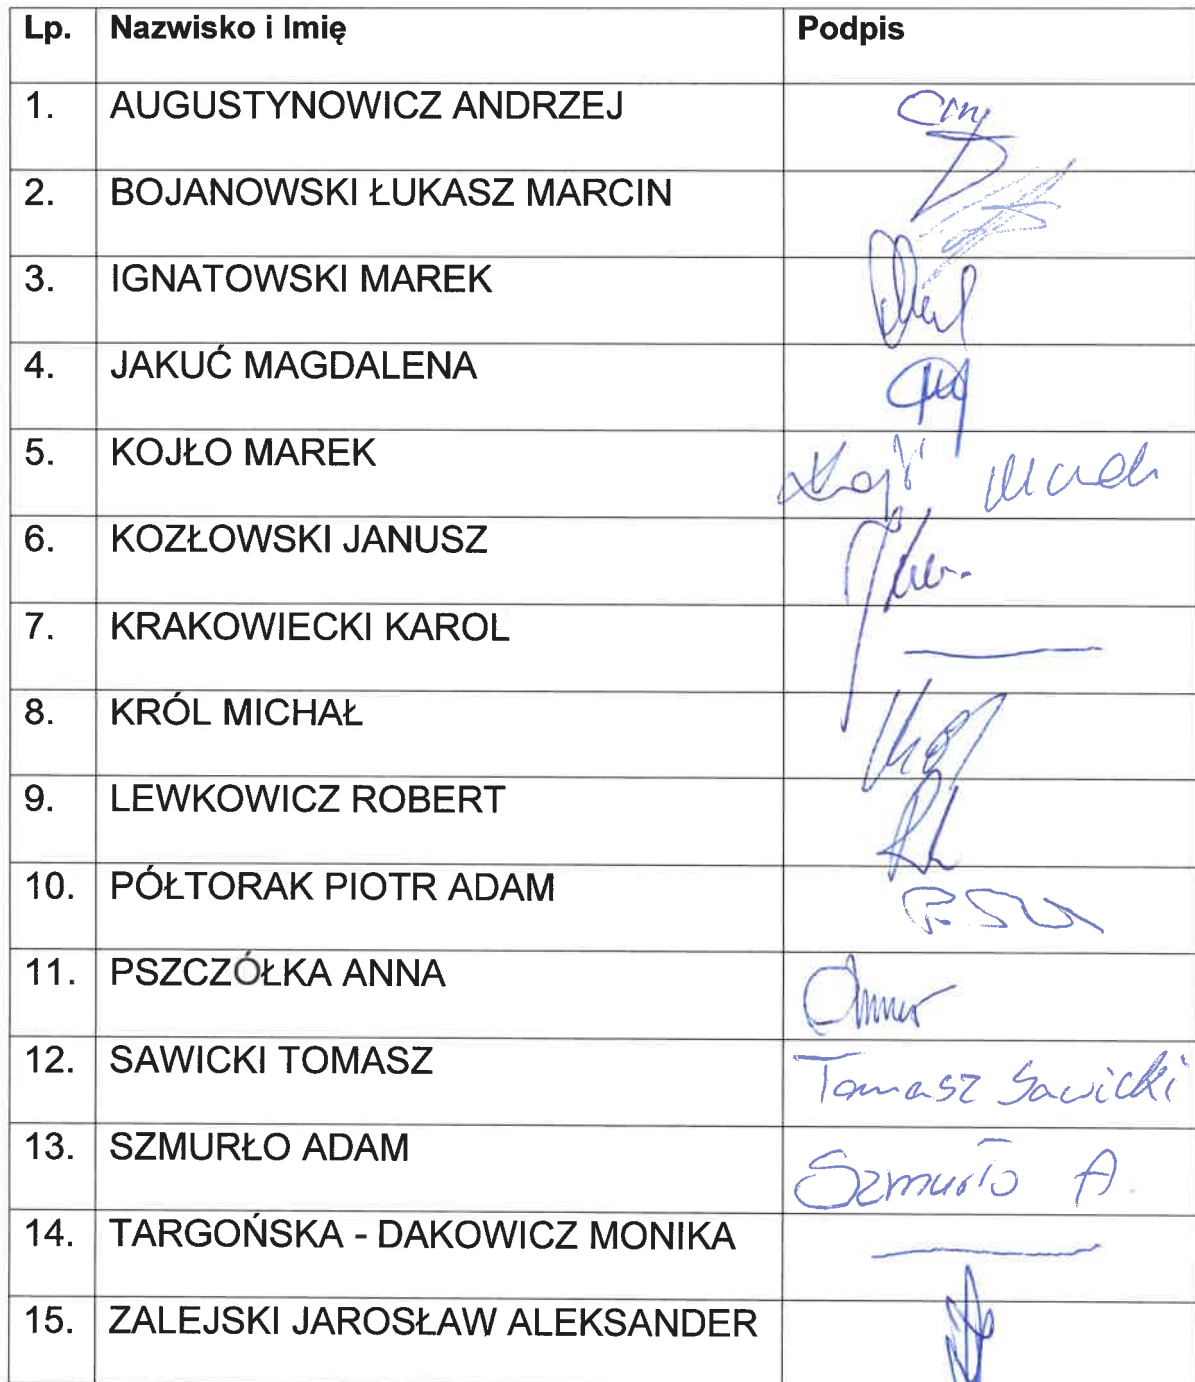 Lp. Nazwisko i Imię Podpis
1. AUGUSTYNOWICZ ANDRZEJ
2. BOJANOWSKI ŁUKASZ MARCIN
3. IGNATOWSKI MAREK
4. JAKUĆ MAGDALENA
5. KOJŁO MAREK
6. KOZŁOWSKI JANUSZ
7. KRAKOWIECKI KAROL
8. KRÓL MICHAŁ
9. LEWKOWICZ ROBERT
10. PÓŁTORAK PIOTR ADAM
11. PSZCZÓŁKA ANNA
12. SAWICKI TOMASZ Tomasz Sawicki
13. SZMURŁO ADAM Szmurło A.
14. TARGOŃSKA - DAKOWICZ MONIKA
15. ZALEJSKI JAROSŁAW ALEKSANDER